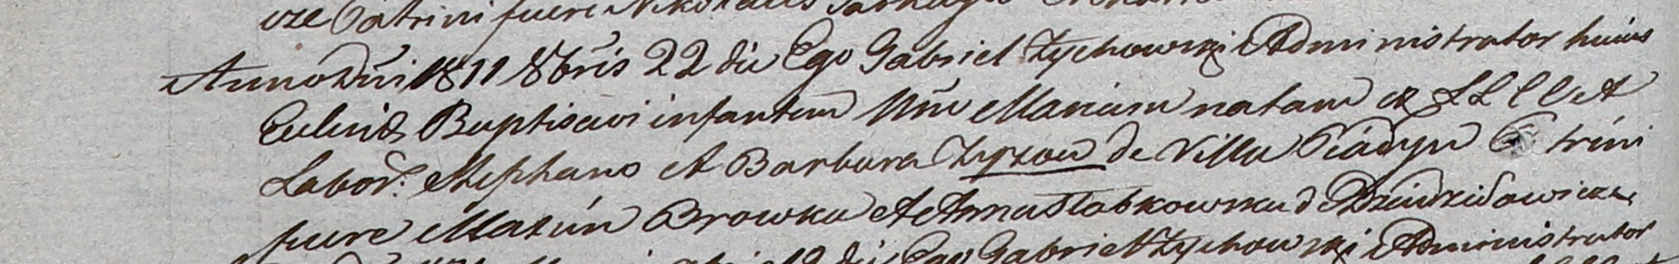 cze Patrini fuere Nikolaus
Anno Dni 1811 8bris 22 die Ego Gabriel Zychowski Administrator huius
Eccliae Baptisavi infantem Nne Mariam natam ex LL CC et
Labor: Stephano et Barbara de Villa Patrini
fuere Matun Browka et Anna Slabkowska d
die Ego Gabriel Zychowski Administrator